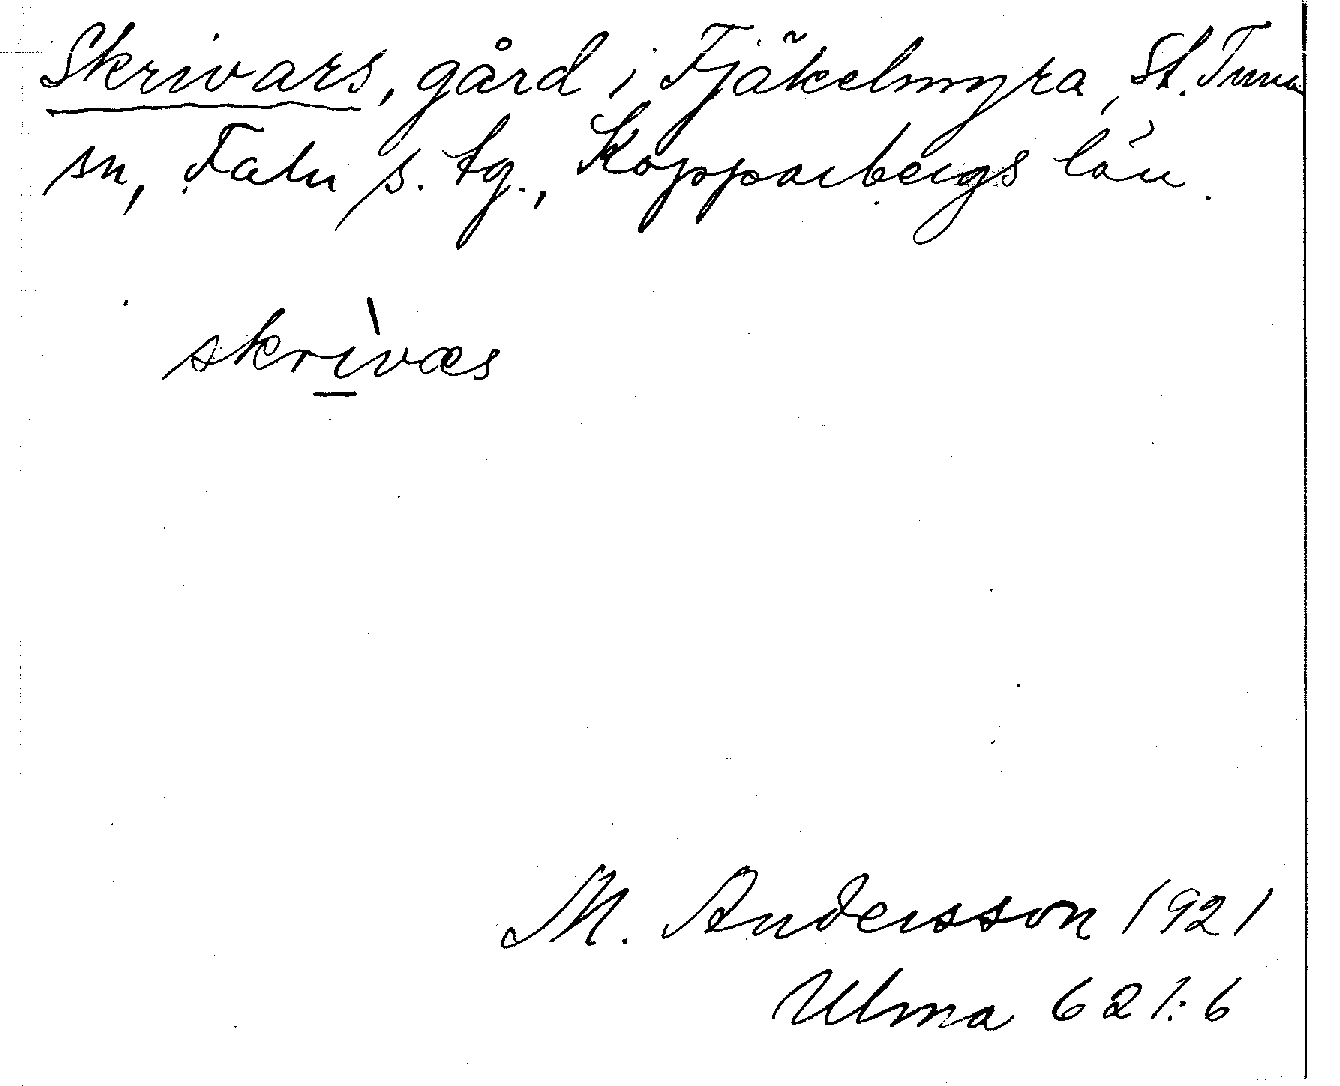 Skrivars, gård i Fjäkelmyra, St. Tuna
sn, Falu s. tg., Kopparbergs län.
skrìvæs
M. Andersson 1921
Ulma 621:6